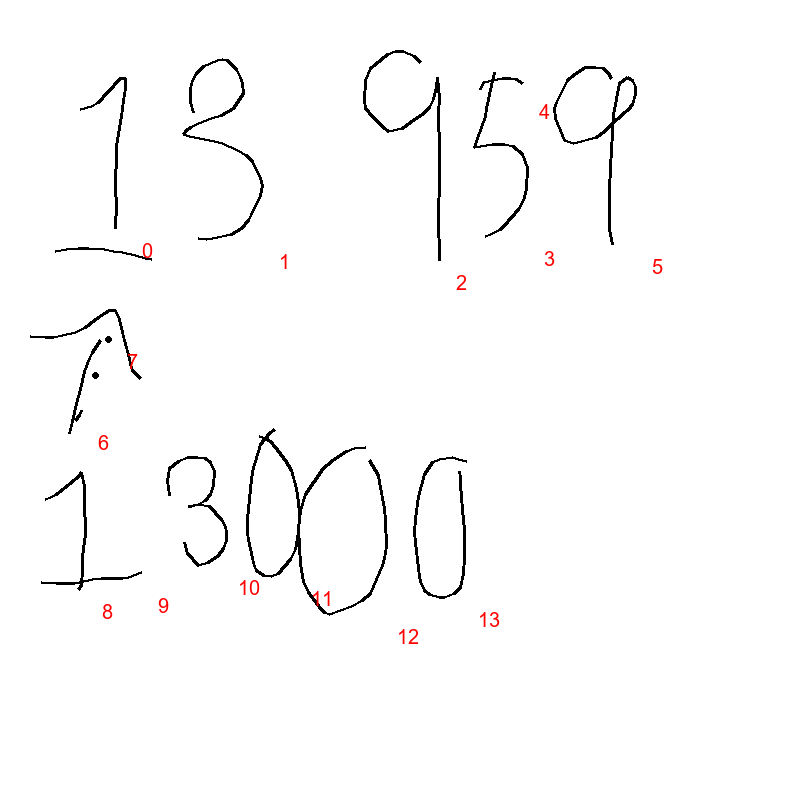 13 959
0 1 2 3 4 5
7
6
13000
8 9 10 11 12 13